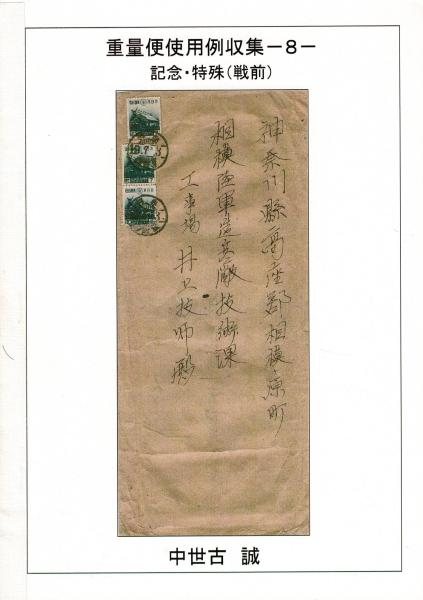 重量便使用例収集－8－
記念・特殊（戦前）
神奈川縣高座郡相模原町
相模陸軍造兵廠技術課
工事場 井上技師殿
19.7.3
中世古 誠